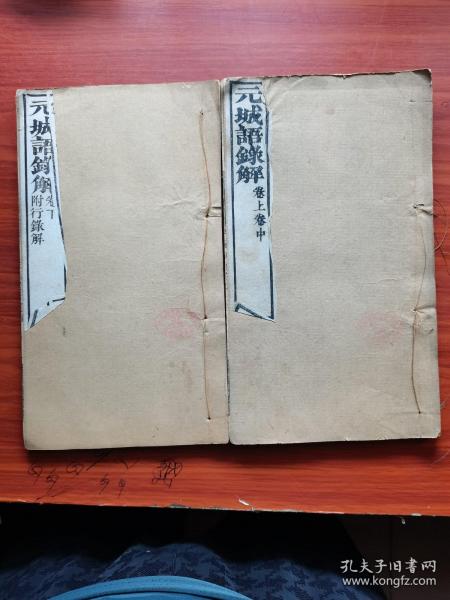 元城語錄解
卷上卷中
元城語錄解
卷下
附行錄解
孔夫子旧书网
www.kongfz.com